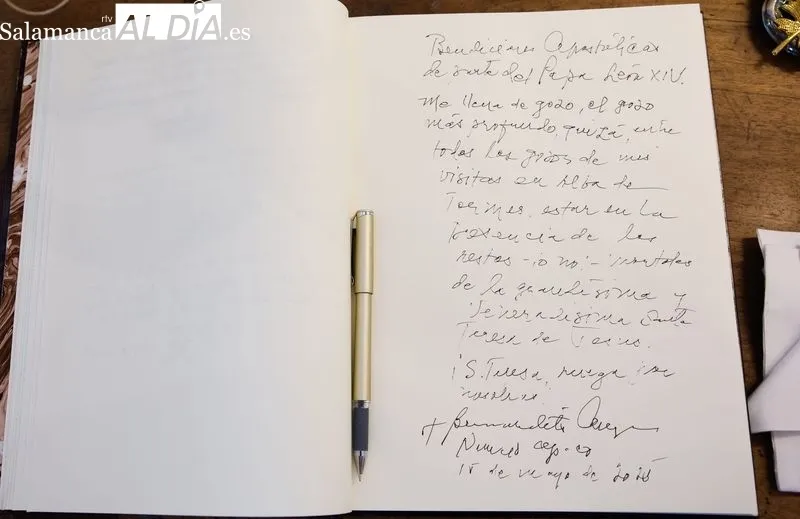 rtv
SalamancaALDÍA.es
Bendiciones Apostólicas
de parte del Papa León XIV.
Me llena de gozo, el gozo
más profundo, quizá, entre
todos los gozos de mis
visitas en Alba de
Tormes, estar en la
presencia de los
restos - ¡o no! - mortales
de la grandísima y
veneradísima Santa
Teresa de Jesús.
¡S. Teresa, ruega por
nosotros!
+ Bernardito
Nuncio
15 de mayo de 2025